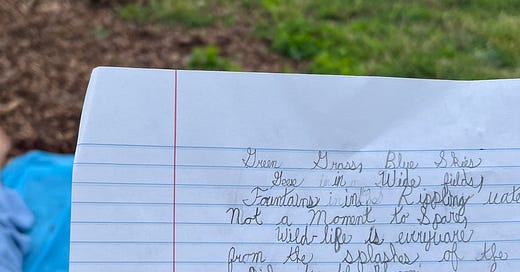 Green Grass, Blue Skies
Geese in Wide fields,
Fountains in Rippling wate
Not a Moment to Spare,
Wild-life is everyware
from the splashes of the